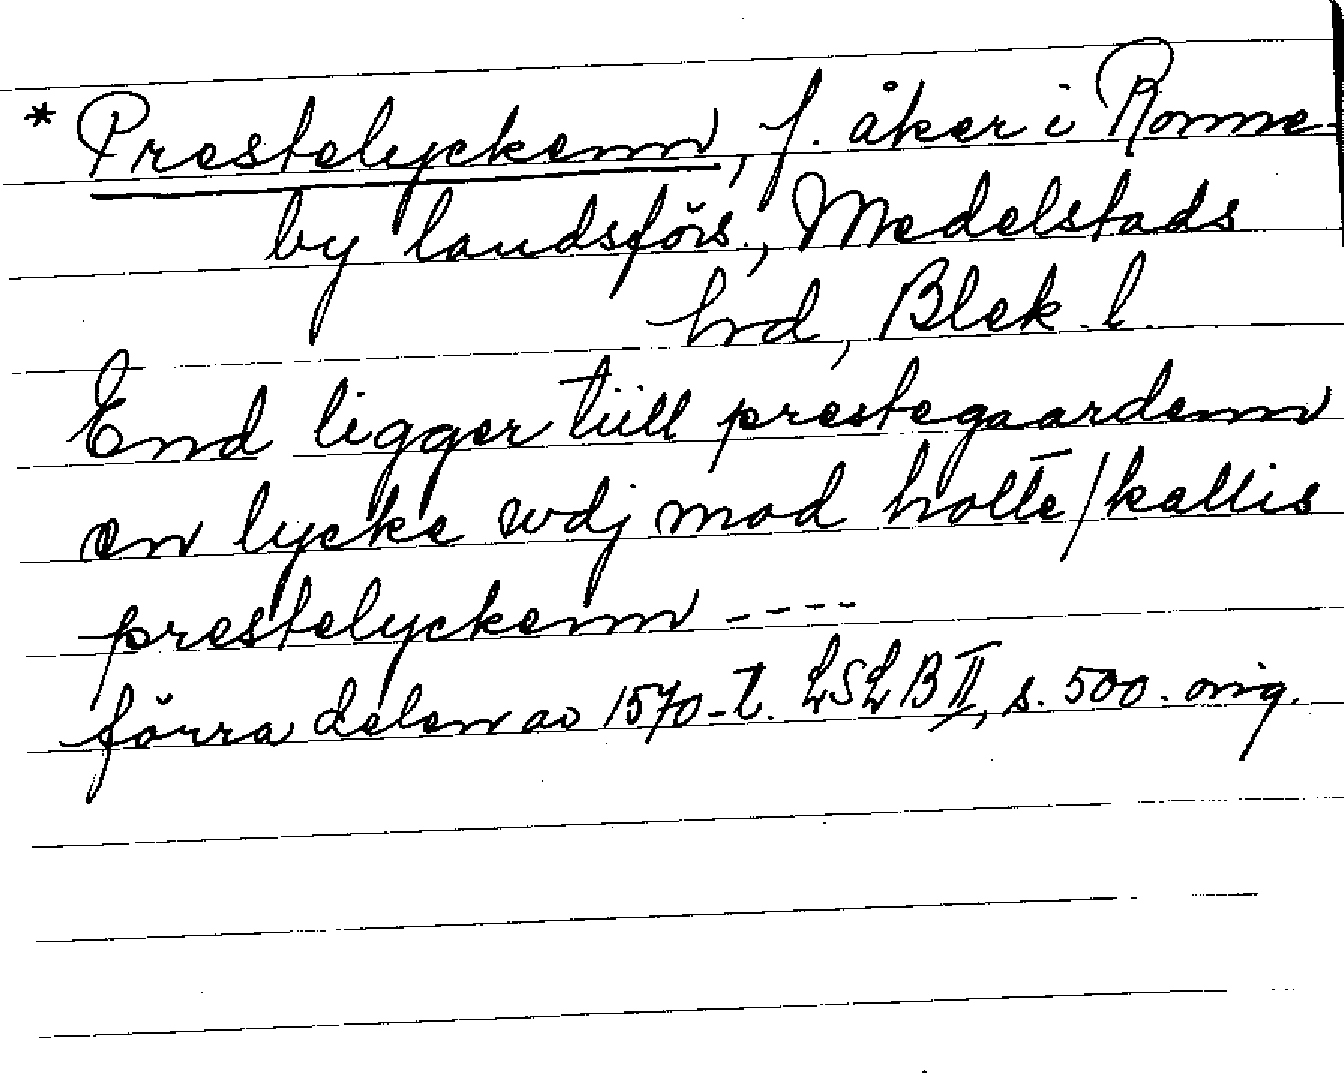 * Prestelyckenn, f. åker i Ronne-
by landsförs., Medelstads
hrd, Blek. l.
End ligger tiill prestegaardenn
en lycke wdj mod holte/kallis
prestelyckenn ----
förra delen av 1570-t. LSLB II, s. 500. orig.